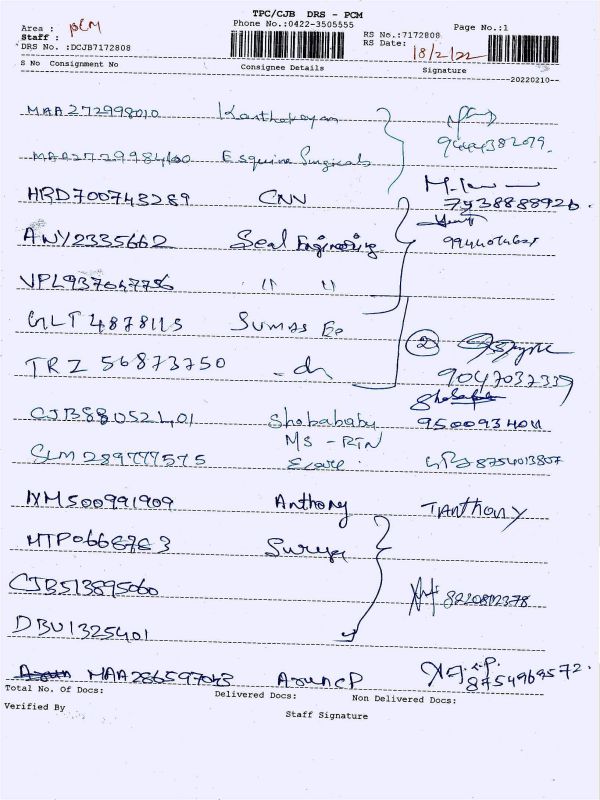 TPC/CJB DRS - PCM
Area : PCM Phone No.:0422-3505555 RS No.:7172808 Page No.:1
Staff : RS Date: 18/2/22
DRS No. :DCJB7172808
S No Consignment No Consignee Details Signature
20220210
MAA272998010
MAA2729984100 Esquire Surgicals 9444382079.
HRD700743289 CNN 7438888926.
ANY2335662 Seal Engineering
VPL937047756 " "
GLT 4878115 Sumas
TRZ 56873750 - do 2 9047037339
CJB880521401 Shobababy
MS - RTN
SLM289777575 Ecare 8754013807
NM500991909 Anthony T Anthony
MTP0668763 Surya
CJB513895060
DBU1325401
MAA286597043 Arun CP 8754969572.
Total No. Of Docs: Delivered Docs: Non Delivered Docs:
Verified By Staff Signature